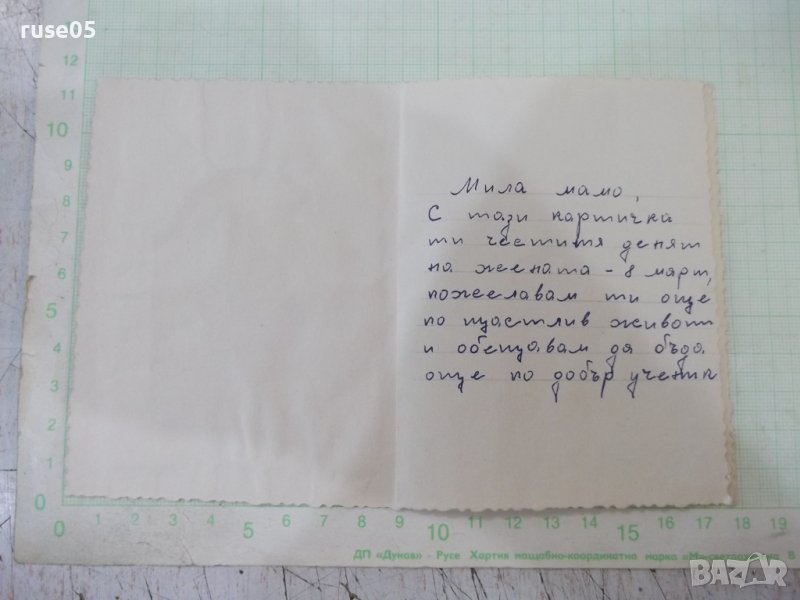 ruse05
12
11
10
9
8
7
6
5
4
3
2
1
0
Мила мамо,
С тази картичка
ти честитя денят
на жената - 8 март,
пожелавам ти още
по щастлив живот
и обещавам да бъда
още по добър ученик
0 1 2 3 4 5 6 7 8 9 10 11 12 13 14 15 16 17 18 19
ДП «Дунав» - Русе Хартия мащабно-координатна марка
BAZAR